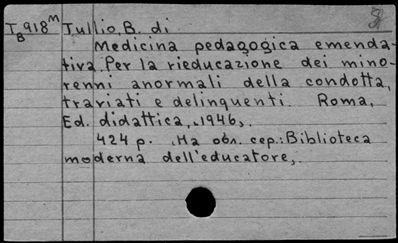 TB918M Tullio, B. di
Medicina pedagogica emenda-
tiva. Per la rieducazione dei mino-
renni anormali della condotta,
traviati e delinquenti. Roma,
Ed. didattica, 1946,
424 p. На обл. сер.: Biblioteca
moderna dell'educatore,